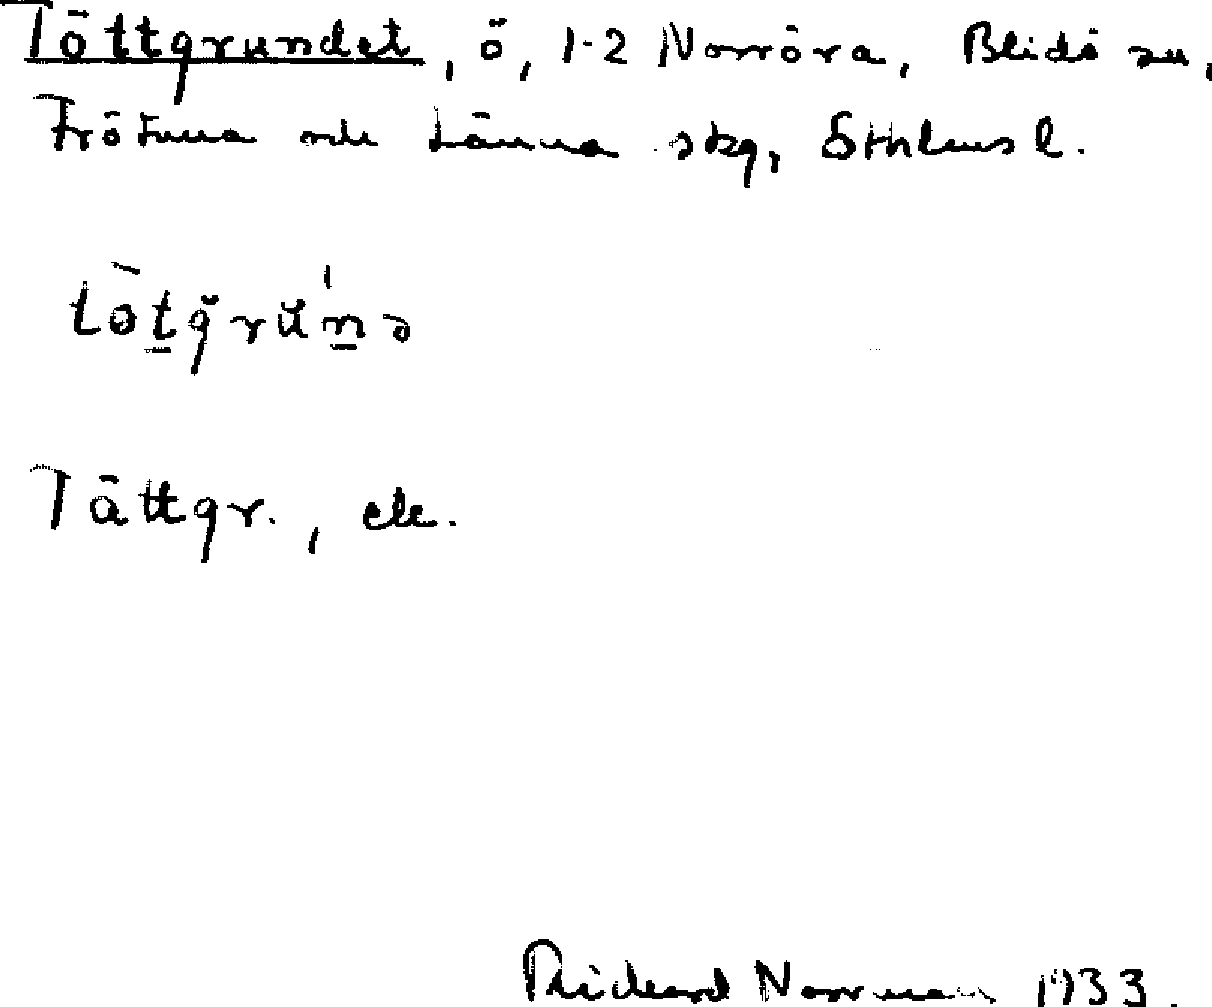 Töttgrundet, ö, 1-2 Norröra, Blidö sn,
Frötuna och Länna skg, Sthlms l.
tötgrúnə
Tåttgr., ek.
Rickard Norrman 1933.